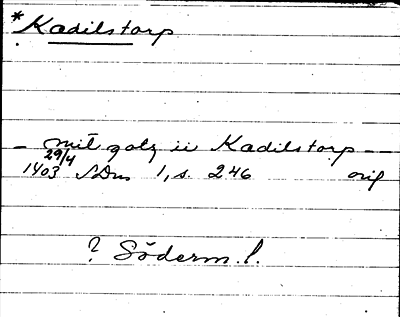 *Kadilstorp
– mit gotz ii Kadilstorp –
29/4
1403 SDns 1, s. 246 orig
? Söderm. l.